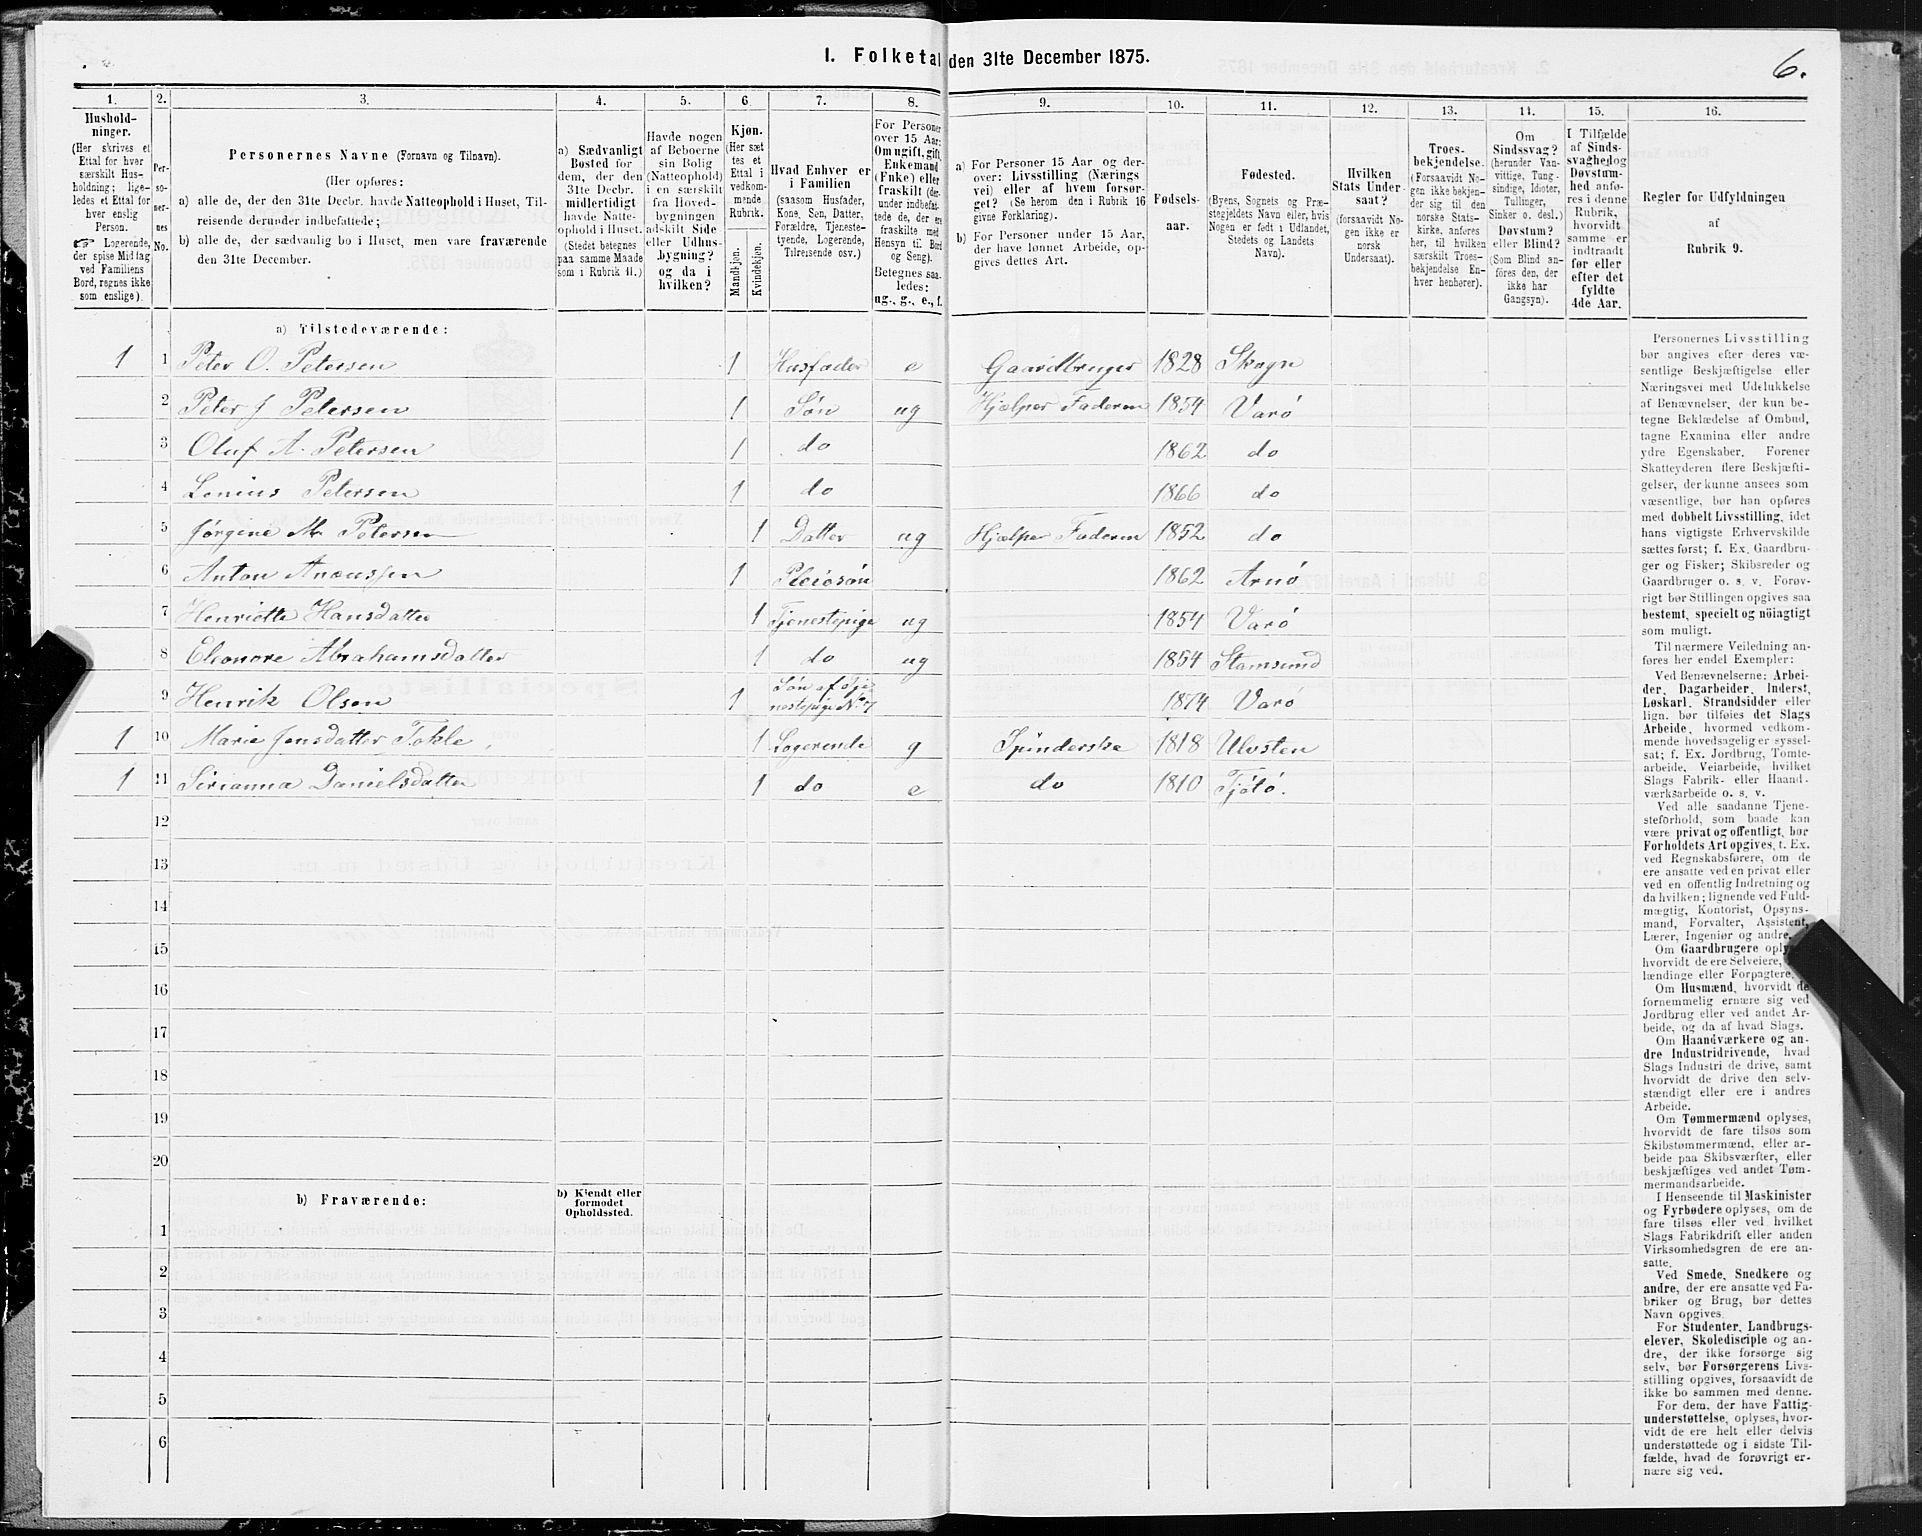 I. Folketal den 31te December 1875.
6.
1. 2. 3. 4. 5. 6. 7. 8. 9. 10. 11. 12. 13. 14. 15. 16.
Hushold-
ninger.
(Her skrives et
Ettal for hver
særskilt Hus-
holdning; lige-
ledes et Ettal for
hver enslig
Person.
☞ Logerende,
der spise Middag
ved Familiens
Bord, regnes ikke
som enslige).
Per-
so-
ner-
nes
No.
Personernes Navne (Fornavn og Tilnavn).
(Her opføres:
a) alle de, der den 31te Decbr. havde Natteophold i Huset, Til-
reisende derunder indbefattede;
b) alle de, der sædvanlig bo i Huset, men vare fraværende
den 31te December.
a) Sædvanligt
Bosted for
dem, der den
31te Decbr.
midlertidigt
havde Natte-
ophold i Huset.
(Stedet betegnes
paa samme Maade
som i Rubrik 11.)
Havde nogen
af Beboerne
sin Bolig
(Natteophold)
i en særskilt
fra Hoved-
bygningen
adskilt Side
eller Udhus-
bygning?
og da i
hvilken?
Kjøn.
(Her sæt
tes et
Ettal i
vedkom-
mende
Rubrik.
Mandkjøn.
Kvindekjøn.
Hvad Enhver er
i Familien
(saasom Husfader,
Kone, Søn, Datter,
Forældre, Tjeneste-
tyende, Logerende,
Tilreisende osv.)
For Personer
over 15 Aar:
Om ugift, gift,
Enkemand
(Enke) eller
fraskilt (der-
under indbefat-
tede de, der ere
fraskilte med
Hensyn til Bord
og Seng).
Betegnes saa-
ledes:
ug., g., e., f.
a) For Personer 15 Aar og der-
over: Livsstilling (Nærings
vei) eller af hvem forsør-
get? (Se herom den i Rubrik 16
givne Forklaring).
b) For Personer under 15 Aar,
der have lønnet Arbeide, op-
gives dettes Art.
Fødsels-
aar.
Fødested.
(Byens, Sognets og Præ-
stegjeldets Navn eller, hvis
Nogen er født i Udlandet,
Stedets og Landets
Navn).
Hvilken
Stats Under-
saat?
(forsaavidt No-
gen ikke er
norsk
Undersaat).
Troes-
bekjendelse.
(Forsaavidt No
gen ikke bekjen-
der sig til den
norske Stats-
kirke, anføres
her, til hvilken
særskilt Troes-
bekjendelse En-
hver henhører).
Om
Sindssvag?
(herunder Van-
vittige, Tung-
sindige, Idioter,
Tullinger,
Sinker o. desl.)
Døvstum?
eller Blind?
(Som Blind an-
føres den, der
ikke har
Gangsyn).
I Tilfælde
af Sinds-
svaghed og
Døvstum-
hed anfø-
res i denne
Rubrik,
hvorvidt
samme er
indtraadt
før eller
efter det
fyldte
4de Aar.
Regler for Udfyldningen
af
Rubrik 9.
a) Tilstedeværende:
1 1 Peter O. Petersen 1 Husfader e Gaardbruger 1828 Skogn
2 Peter J Petersen 1 Søn ug Hjælper Faderen 1854 Varö
3 Oluf A. Petersen 1 do 1862 do
4 Lenius Petersen 1 do 1866 do
5 Jørgine M Petersen 1 Datter ug Hjælper Faderen 1852 do
6 Anton 1 Pleiesøn 1862 Arnö
7 Henriette Hansdatter 1 Tjenestepige ug 1854 Varö
8 Elenore Abrahamsdatter 1 do ug 1854 Stamsund
9 Henrik Olsen 1 Søn af Tje-
nestepige No 7 1874 Varö
1 10 Marie Jensdatter Tokle 1 Logerende g Spinderske 1818 Ulvsten
1 11 Sirianna Danielsdatter 1 do e do 1810 Tjötö.
12
13
14
15
16
17
18
19
20
b) Fraværende:
b) Kjendt eller
formodet
Opholdssted.
1
2
3
4
5
6
Personernes Livsstilling
bør angives efter deres væ-
sentlige Beskjæftigelse eller
Næringsvei med Udelukkelse
af Benævnelser, der kun be-
tegne Beklædelse af Ombud,
tagne Examina eller andre
ydre Egenskaber. Forener
Skatteyderen flere Beskjæfti-
gelser, der kunne ansees som
væsentlige, bør han opføres
med dobbelt Livsstilling, idet
hans vigtigste Erhvervskilde
sættes først; f. Ex. Gaardbru-
ger og Fisker; Skibsreder og
Gaardbruger o. s. v. Forøv-
rigt bør Stillingen opgives saa
bestemt, specielt og nöiagtigt
som muligt.
Til nærmere Veiledning an-
føres her endel Exempler:
Ved Benævnelserne: Arbei-
der, Dagarbeider, Inderst,
Løskarl, Strandsidder eller
lign. bør tilføies det Slags
Arbeide, hvormed vedkom-
mende hovedsagelig er syssel-
sat; f. Ex. Jordbrug, Tomte-
arbeide, Veiarbeide, hvilket
Slags Fabrik- eller Haand-
værksarbeide o. s. v.
Ved alle saadanne Tjene-
steforhold, som baade kan
være privat og offentligt, bør
Forholdets Art opgives, f. Ex.
ved Regnskabsførere, om de
ere ansatte ved en privat eller
ved en offentlig Indretning og
da hvilken; lignende ved Fuld-
mægtig, Kontorist, Opsyns-
mand, Forvalter, Assistent,
Lærer, Ingeniør og andre.
Om Gaardbrugere oplyses,
hvorvidt de ere Selveiere,
lændinge eller Forpagtere.
Om Husmænd, hvorvidt de
fornemmelig ernære sig ved
Jordbrug eller ved andet Ar-
beide, og da af hvad Slags.
Om Haandværkere og an-
dre Industridrivende, hvad
Slags Industri de drive, samt
hvorvidt de drive den selv-
stændigt eller ere i andres
Arbeide.
Om Tømmermænd oplyses,
hvorvidt de fare tilsøs som
Skibstømmermænd, eller ar-
beide paa Skibsværfter, eller
beskjæftiges ved andet Tøm-
mermandsarbeide.
I Henseende til Maskinister
og Fyrbødere oplyses, om de
fare tilsøs eller ved hvilket
Slags Fabrikdrift eller anden
Virksomhedsgren de ere an-
satte.
Ved Smede, Snedkere og
andre, der ere ansatte ved Fa-
briker og Brug, bør dettes
Navn opgives.
For Studenter, Landbrugs-
elever, Skoledisciple og an-
dre, der ikke forsørge sig
selv, bør Forsørgerens Livs-
stilling opgives, forsaavidt de
ikke bo sammen med denne.
For dem, der have Fattig-
understøttelse, oplyses, hvor-
vidt de ere helt eller delvis
understøttede og i sidste Til-
fælde, hvad de forøvrigt er-
nære sig ved.